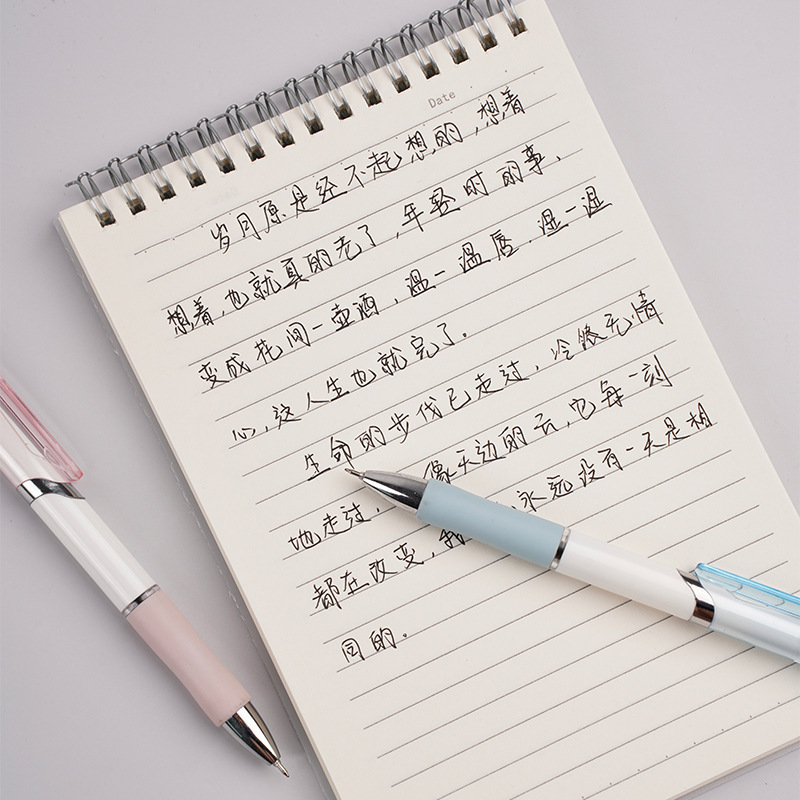 Date
岁月原是经不起想的,想着
想着,也就真的老了,年轻时的事、
变成花间一壶酒,温一温唇、湿一湿
心,这人生也就完了。
生命的步伐已走过,冷傲无情
地走过, 像天边的云,它每一刻
都在改变,我 永远没有一天是相
同的。